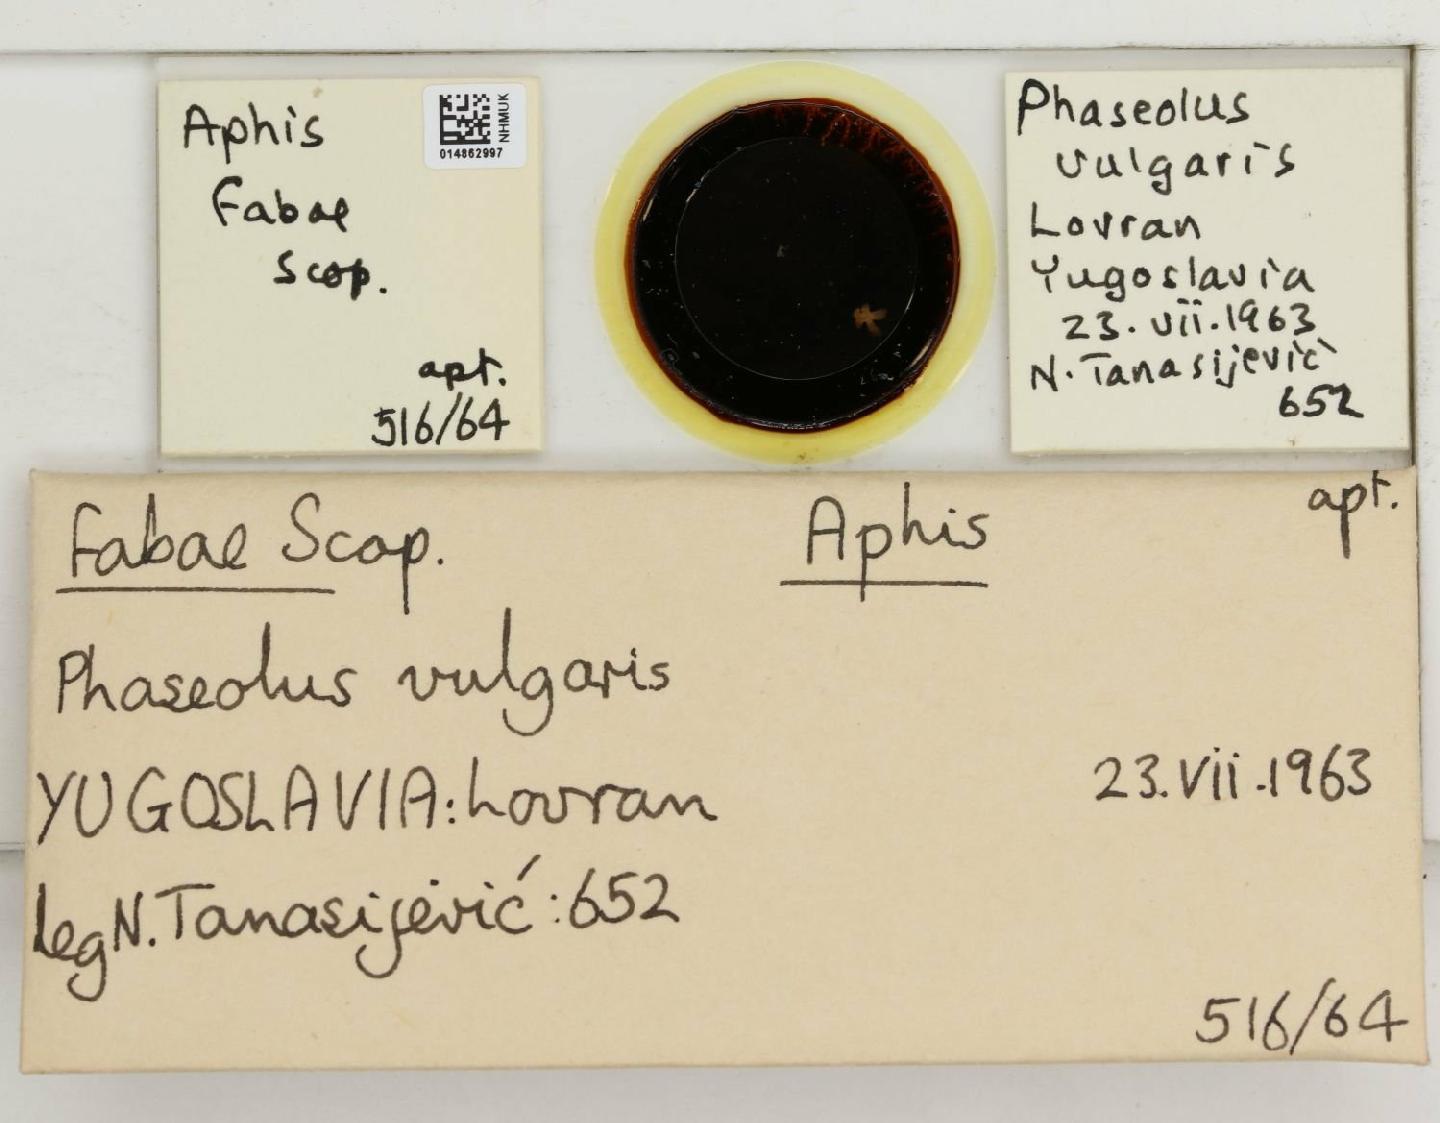 Aphis
fabae
Scop.
apt.
516/64
NHMUK
014862997
Phaseolus
vulgaris
Lovran
Yugoslavia
23.vii.1963
N. Tanasijević
652
fabae Scop. Aphis apt.
Phaseolus vulgaris
YUGOSLAVIA: Lovran 23.vii.1963
leg N. Tanasijević: 652
516/64